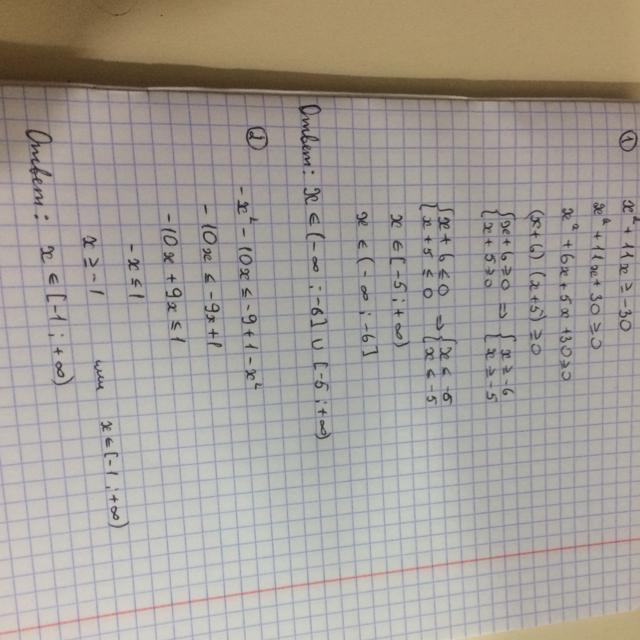 ① x² + 11x ≥ -30
x² + 11x + 30 ≥ 0
x² + 6x + 5x + 30 ≥ 0
(x+6) (x+5) ≥ 0
{ x + 6 ≥ 0 ⇒ { x ≥ -6
{ x + 5 ≥ 0 { x ≥ -5
{ x + 6 ≤ 0 ⇒ { x ≤ -6
{ x + 5 ≤ 0 { x ≤ -5
x ∈ [-5 ; +∞)
x ∈ (-∞ ; -6]
Ответ: x ∈ (-∞ ; -6] ∪ [-5 ; +∞)
② -x² - 10x ≤ -9 + 1 - x²
-10x ≤ -9x + 1
-10x + 9x ≤ 1
-x ≤ 1
x ≥ -1 или x ∈ [-1 ; +∞)
Ответ: x ∈ [-1 ; +∞)